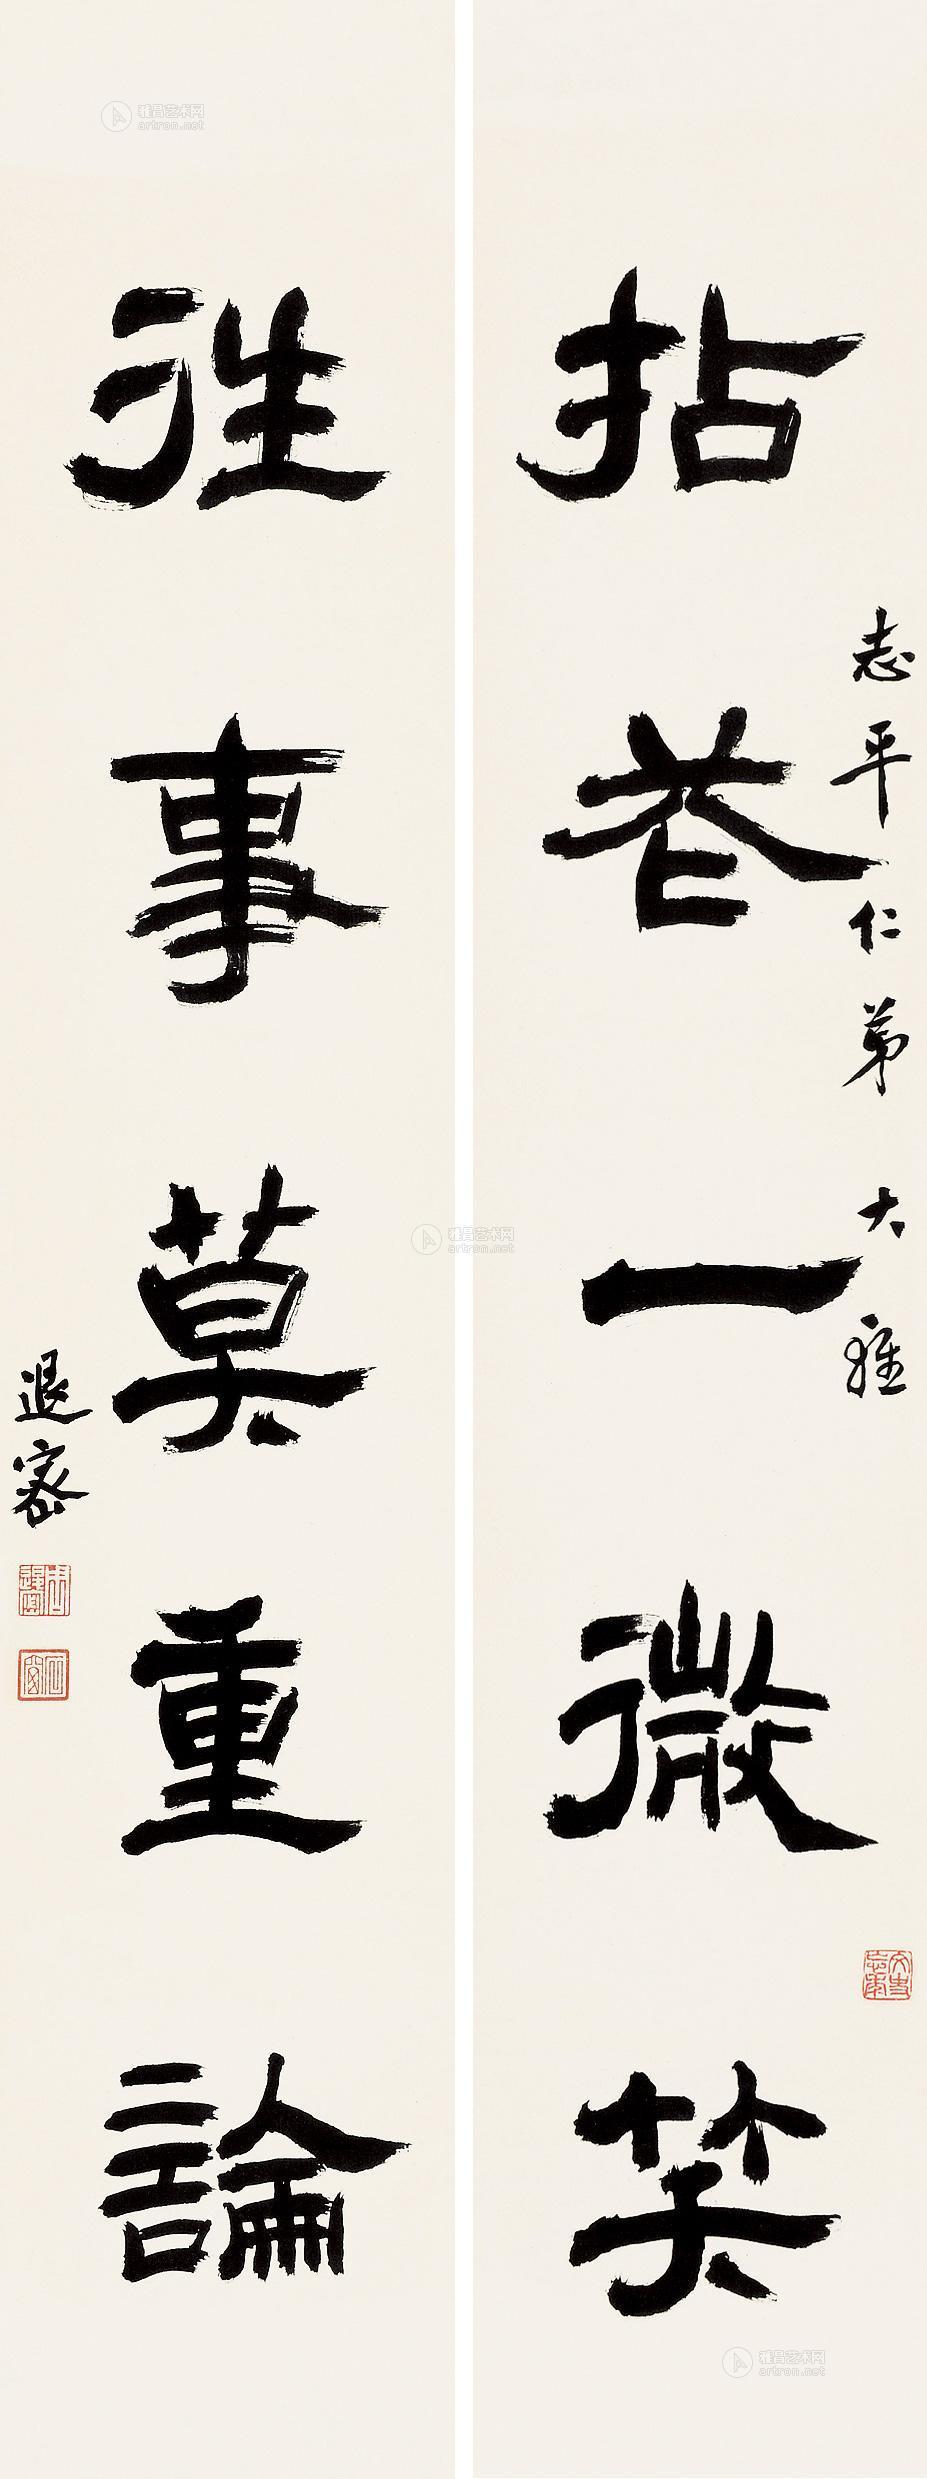 拈卷一微笑
志平仁弟大雅
往事莫重論
退密
周退密
石窗
雅昌艺术网
artron.net
雅昌艺术网
artron.net
雅昌艺术网
artron.net